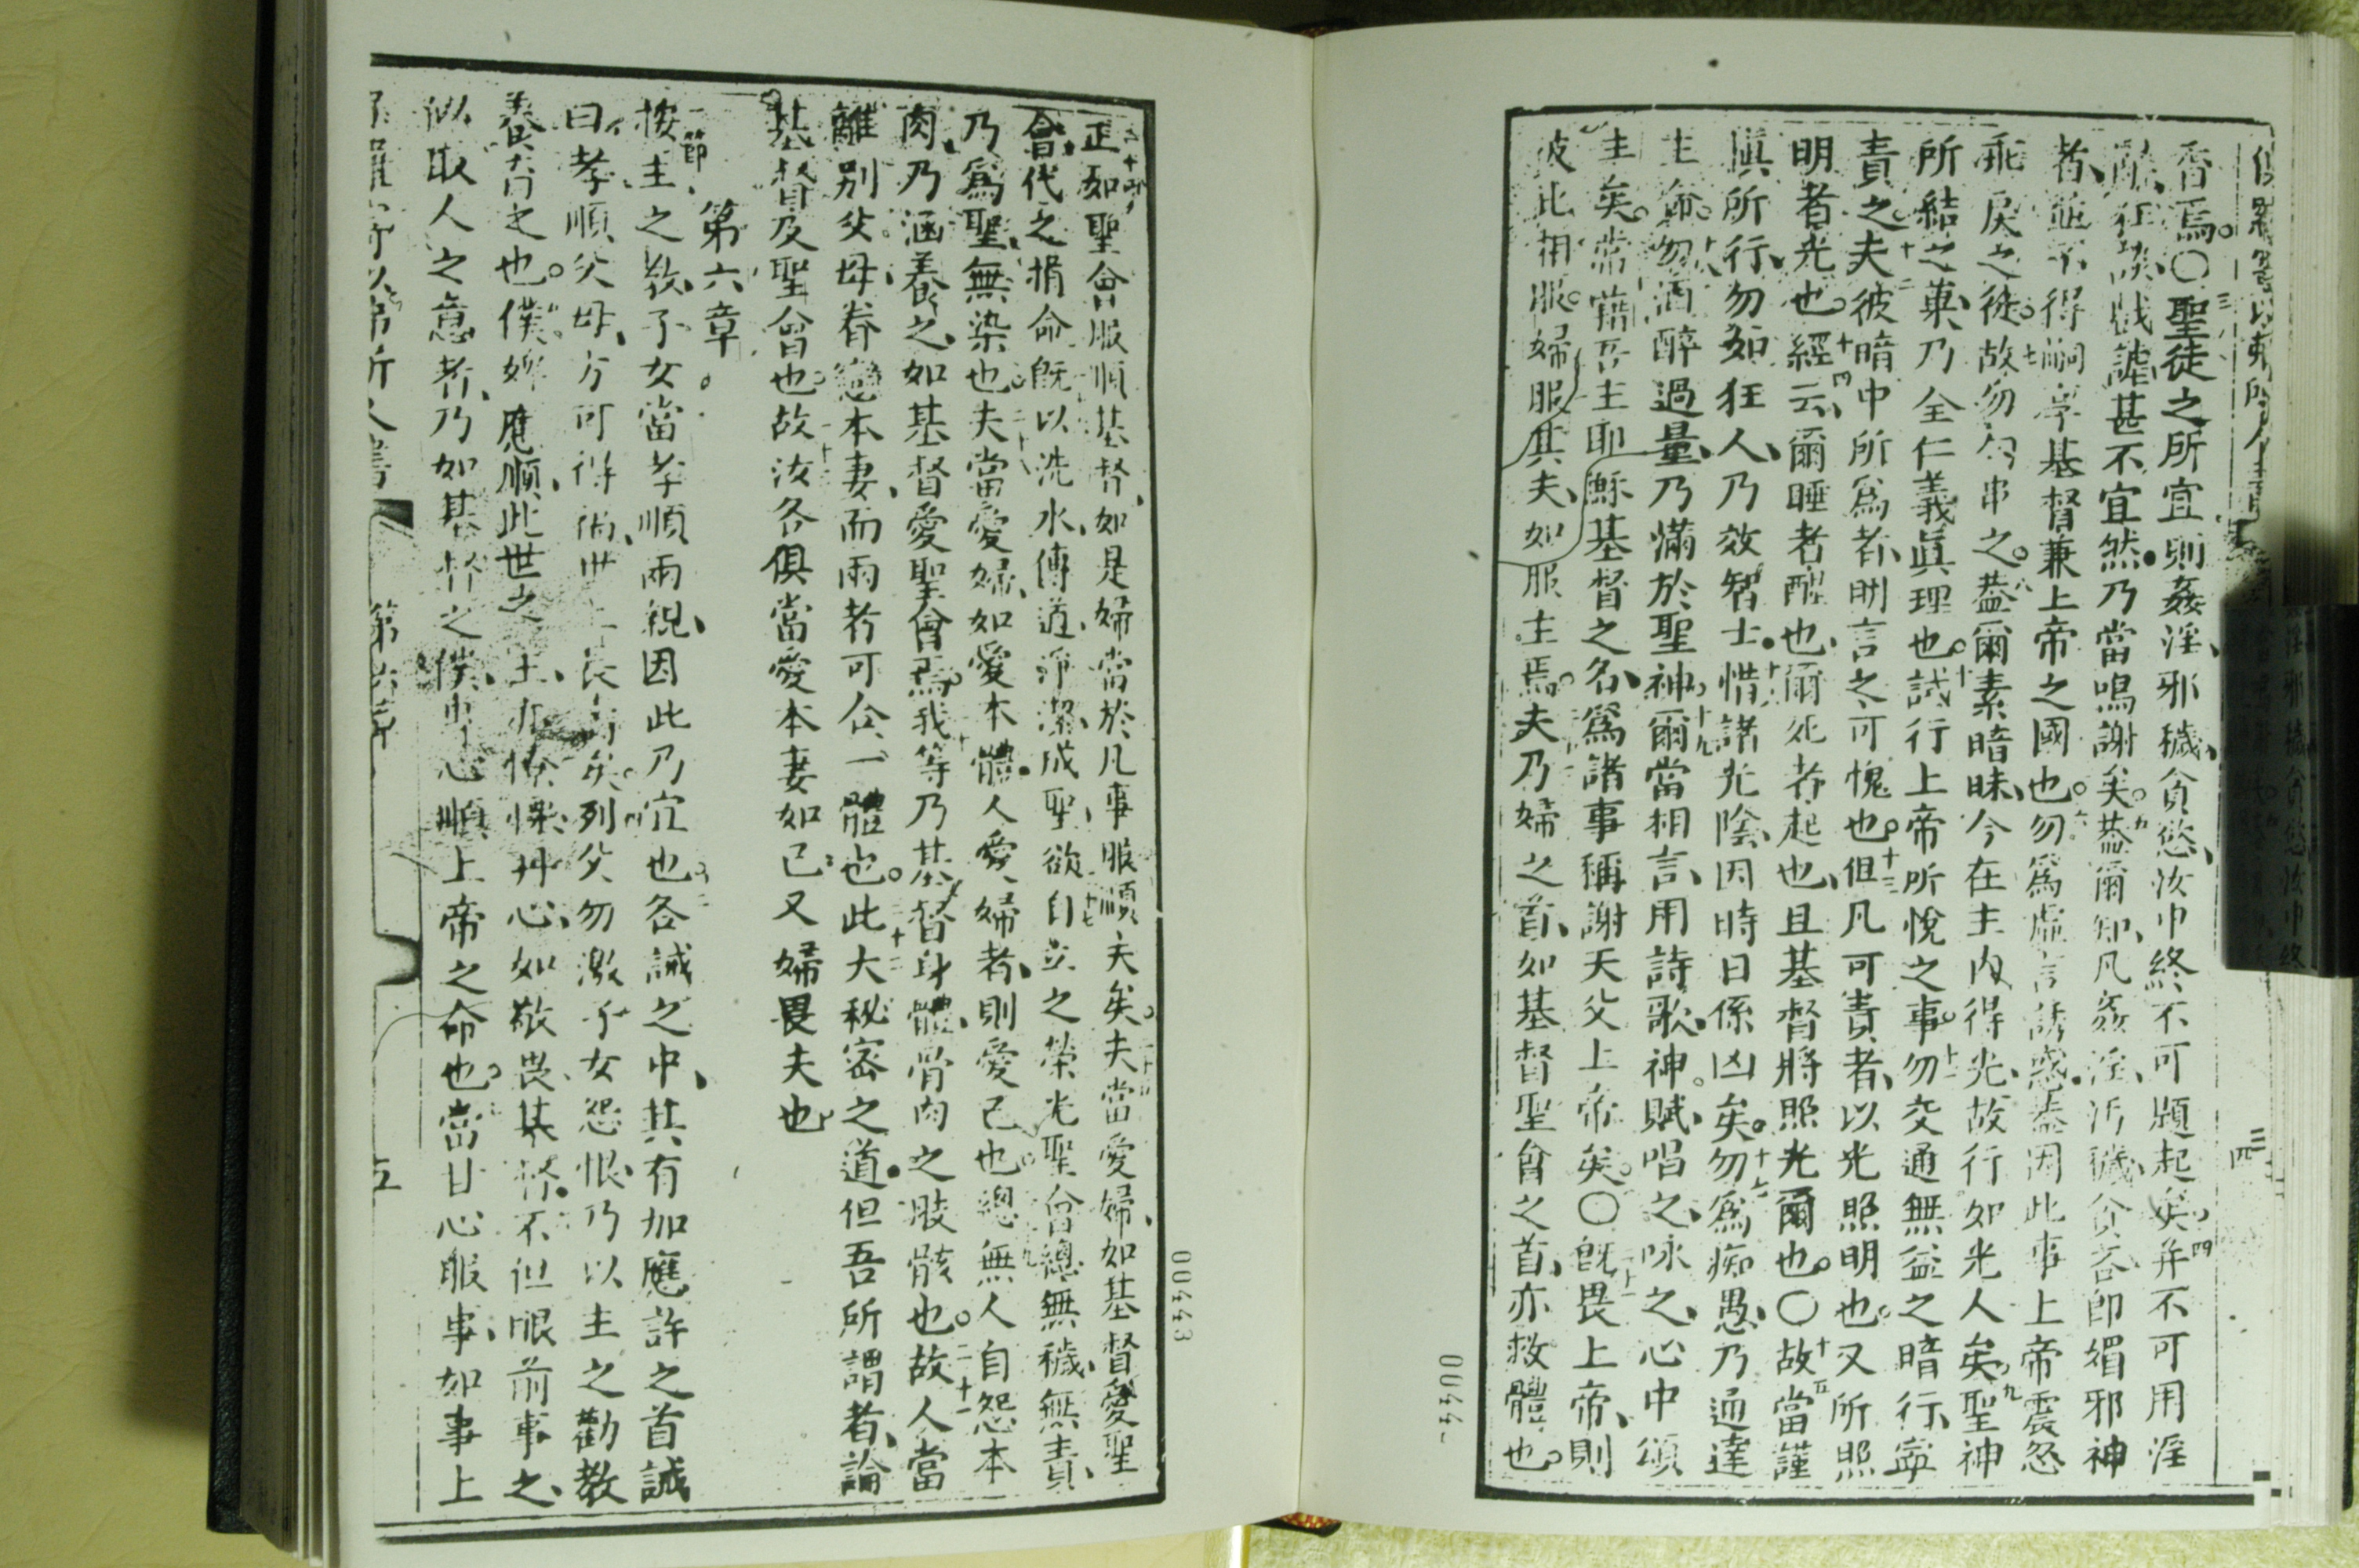 香焉。〇聖徒之所宜則姦淫、邪穢、貪慾、汝中終不可題起矣、四并不可用淫
狂談、戲謔、甚不宜然。乃當鳴謝矣。五葢爾知、凡姦淫、汚穢、貪吝即媚邪神
者、並不得嗣享基督兼上帝之國也。六勿爲虛言誘惑、葢因此事上帝震怒
乖戾之徒。七故勿勾串之。八葢爾素暗昧、今在主內得光、故行如光人矣、九聖神
所結之菓、乃全仁義眞理也。十試行上帝所悅之事。十一勿交通無益之暗行、寧
責之。十二夫彼暗中所爲者、明言之可愧也。十三但凡可責者、以光照明也。又所照
明者光也。十四經云、爾睡者醒也、爾死者起也、且基督將照光爾也。〇十五故當謹
愼所行、勿如狂人、乃效智士。十六惜諸光陰、因時日係凶矣。十七勿爲痴愚、乃通達
主命。十八勿酒醉過量、乃滿於聖神。十九爾當相言、用詩歌、神賦、唱之、咏之、心中頌
主矣。常藉吾主耶穌基督之名、爲諸事稱謝天父上帝矣。〇旣畏上帝、則
彼此相服。婦服其夫、如服主焉。夫乃婦之首、如基督聖會之首、亦救體也。
00442
正如聖會服順基督、如是婦當於凡事服順夫矣。夫當愛婦、如基督愛聖
會、代之捐命旣以洗水、傳道、淨潔成聖、欲自立之榮光聖會、總無穢、無責、
乃爲聖、無染也。夫當愛婦、如愛本體。人愛婦者、則愛己也。總無人自怨本
肉、乃涵養之、如基督愛聖會焉。我等乃基督身體骨肉之肢骸也。二十一故人當
離別父母、眷戀本妻、而兩者可合一體也。此大秘密之道。但吾所謂者、論
基督及聖會也。故汝各俱當愛本妻如己、又婦畏夫也
第六章。
一節、按主之教、子女當孝順兩親、因此乃宜也。各誡之中、其有加應許之首誡
曰、孝順父母、方可得尚世上長壽矣。列父勿激子女怨恨、乃以主之勸教
養育之也。僕婢應順此世之主、力懔慄丹心、如敬畏基督。不但眼前事之、
似取人之意者、乃如基督之僕、由心順上帝之命也。當甘心服事、如事上
第六章
五
00443